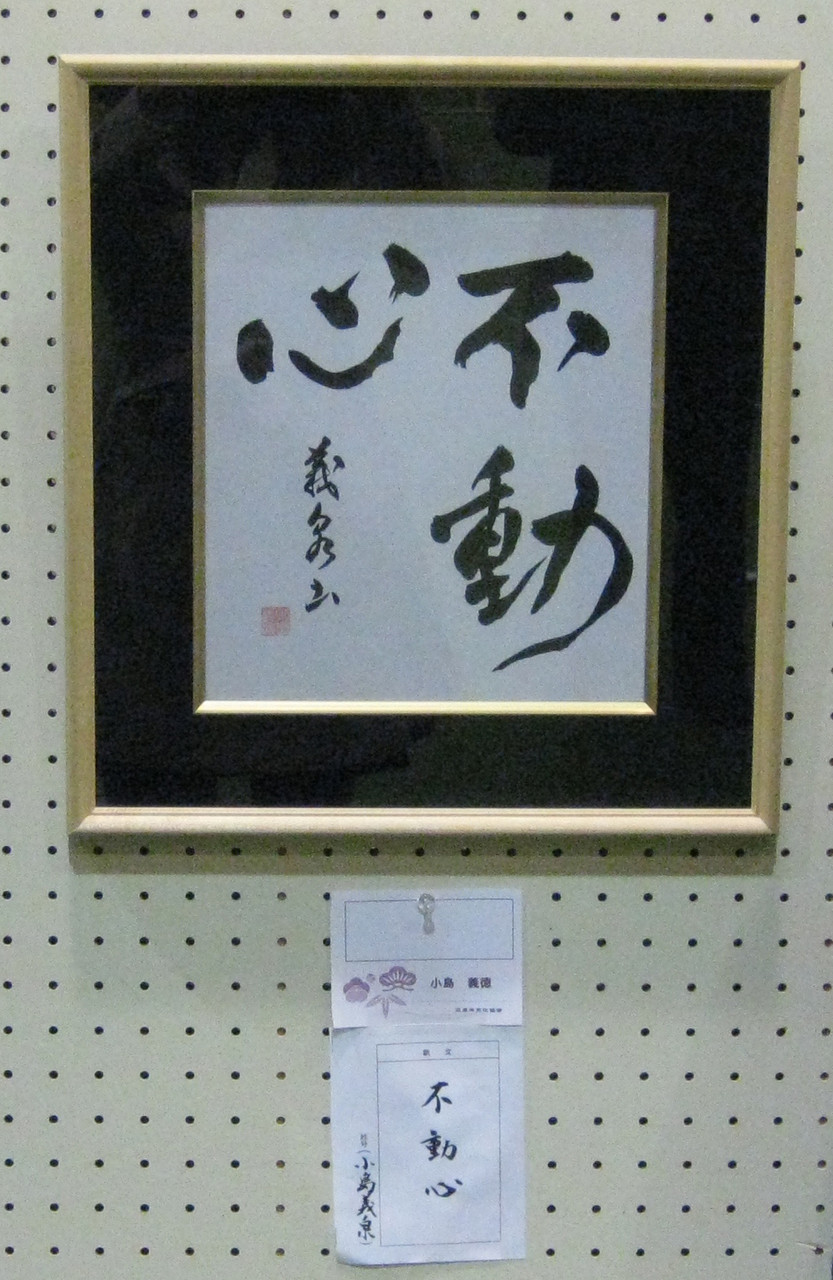 不動
心
義泉书
小島 義徳
釈文
不動心
小島義泉